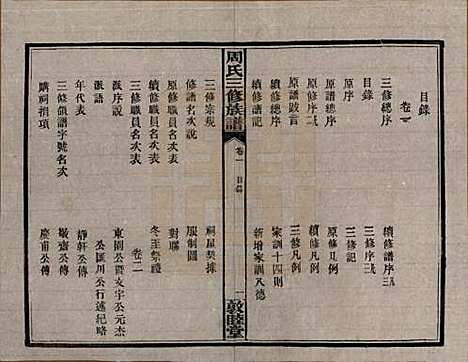 目錄
卷一
三修總序 續修譜序三
目錄 三修序三
原序 原修凡例
原修序二 三修記
原譜跋言 續修凡例
續修序三 三修凡例
續修譜記 家訓十四則
新增家訓八德
周氏三修族譜
卷一 目錄
一
敦睦堂
三修宗規 祠屋契據
修譜名次說 服制圖
原修職員名次表 對聯
續修職員名次表 冬至祭禮
三修職員名次表
派序說 卷二
派語 東園公暨支宇公元杰
年代表 公匯川公行述紀略
三修領譜字號名次 靜軒公傳
購祠捐項 嶽齋公傳
慶甫公傳